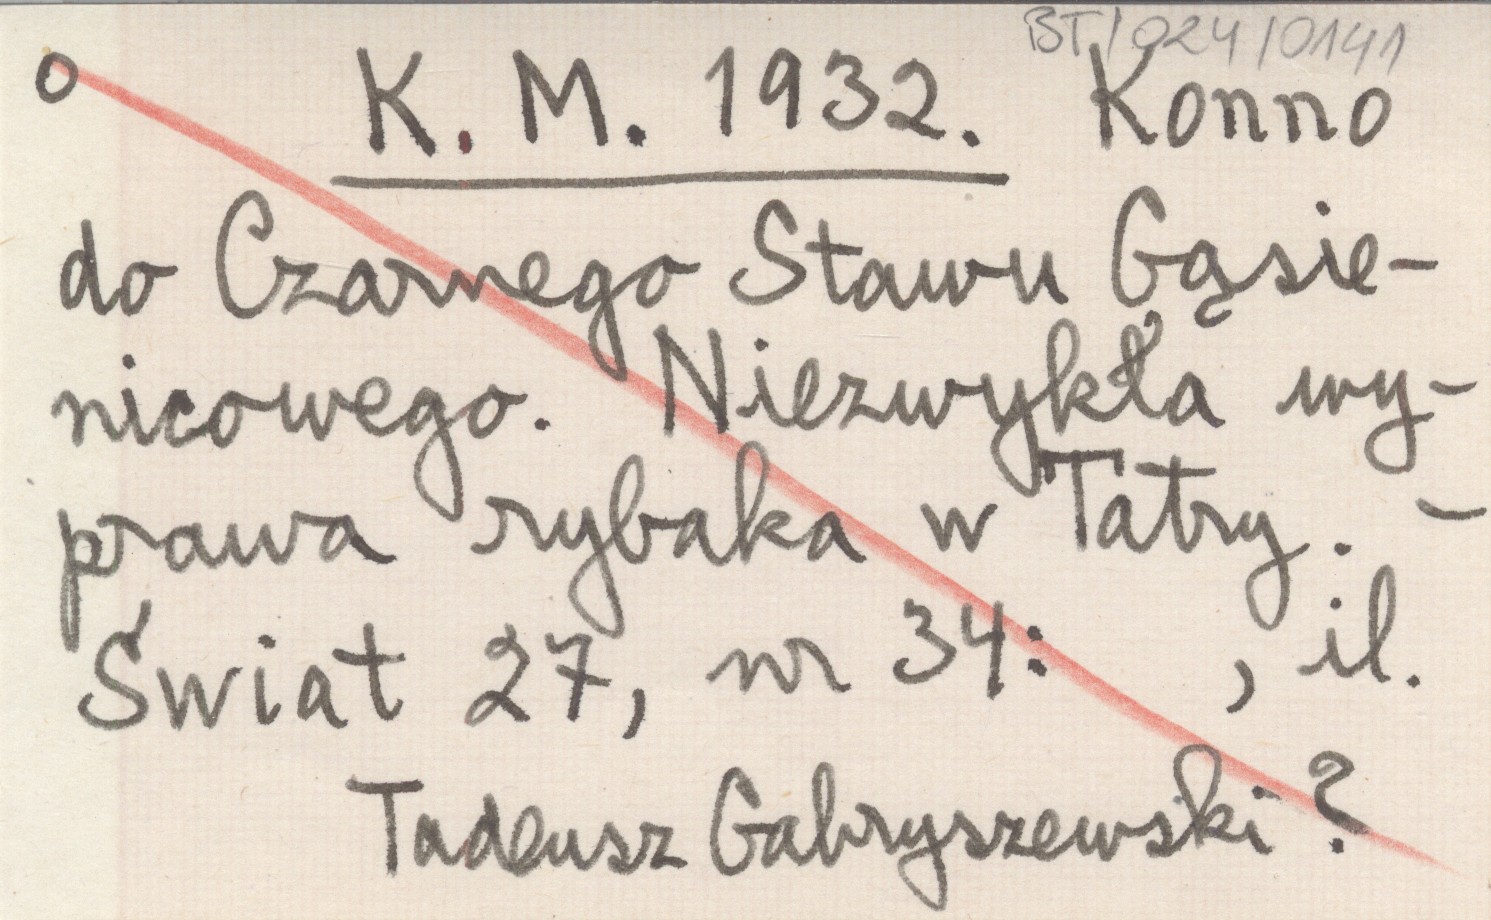 BT/024/0141
o K. M. 1932. Konno
do Czarnego Stawu Gąsie-
nicowego. Niezwykła wy-
prawa rybaka w Tatry. -
Świat 27, nr 34: , il.
Tadeusz Gabryszewski?